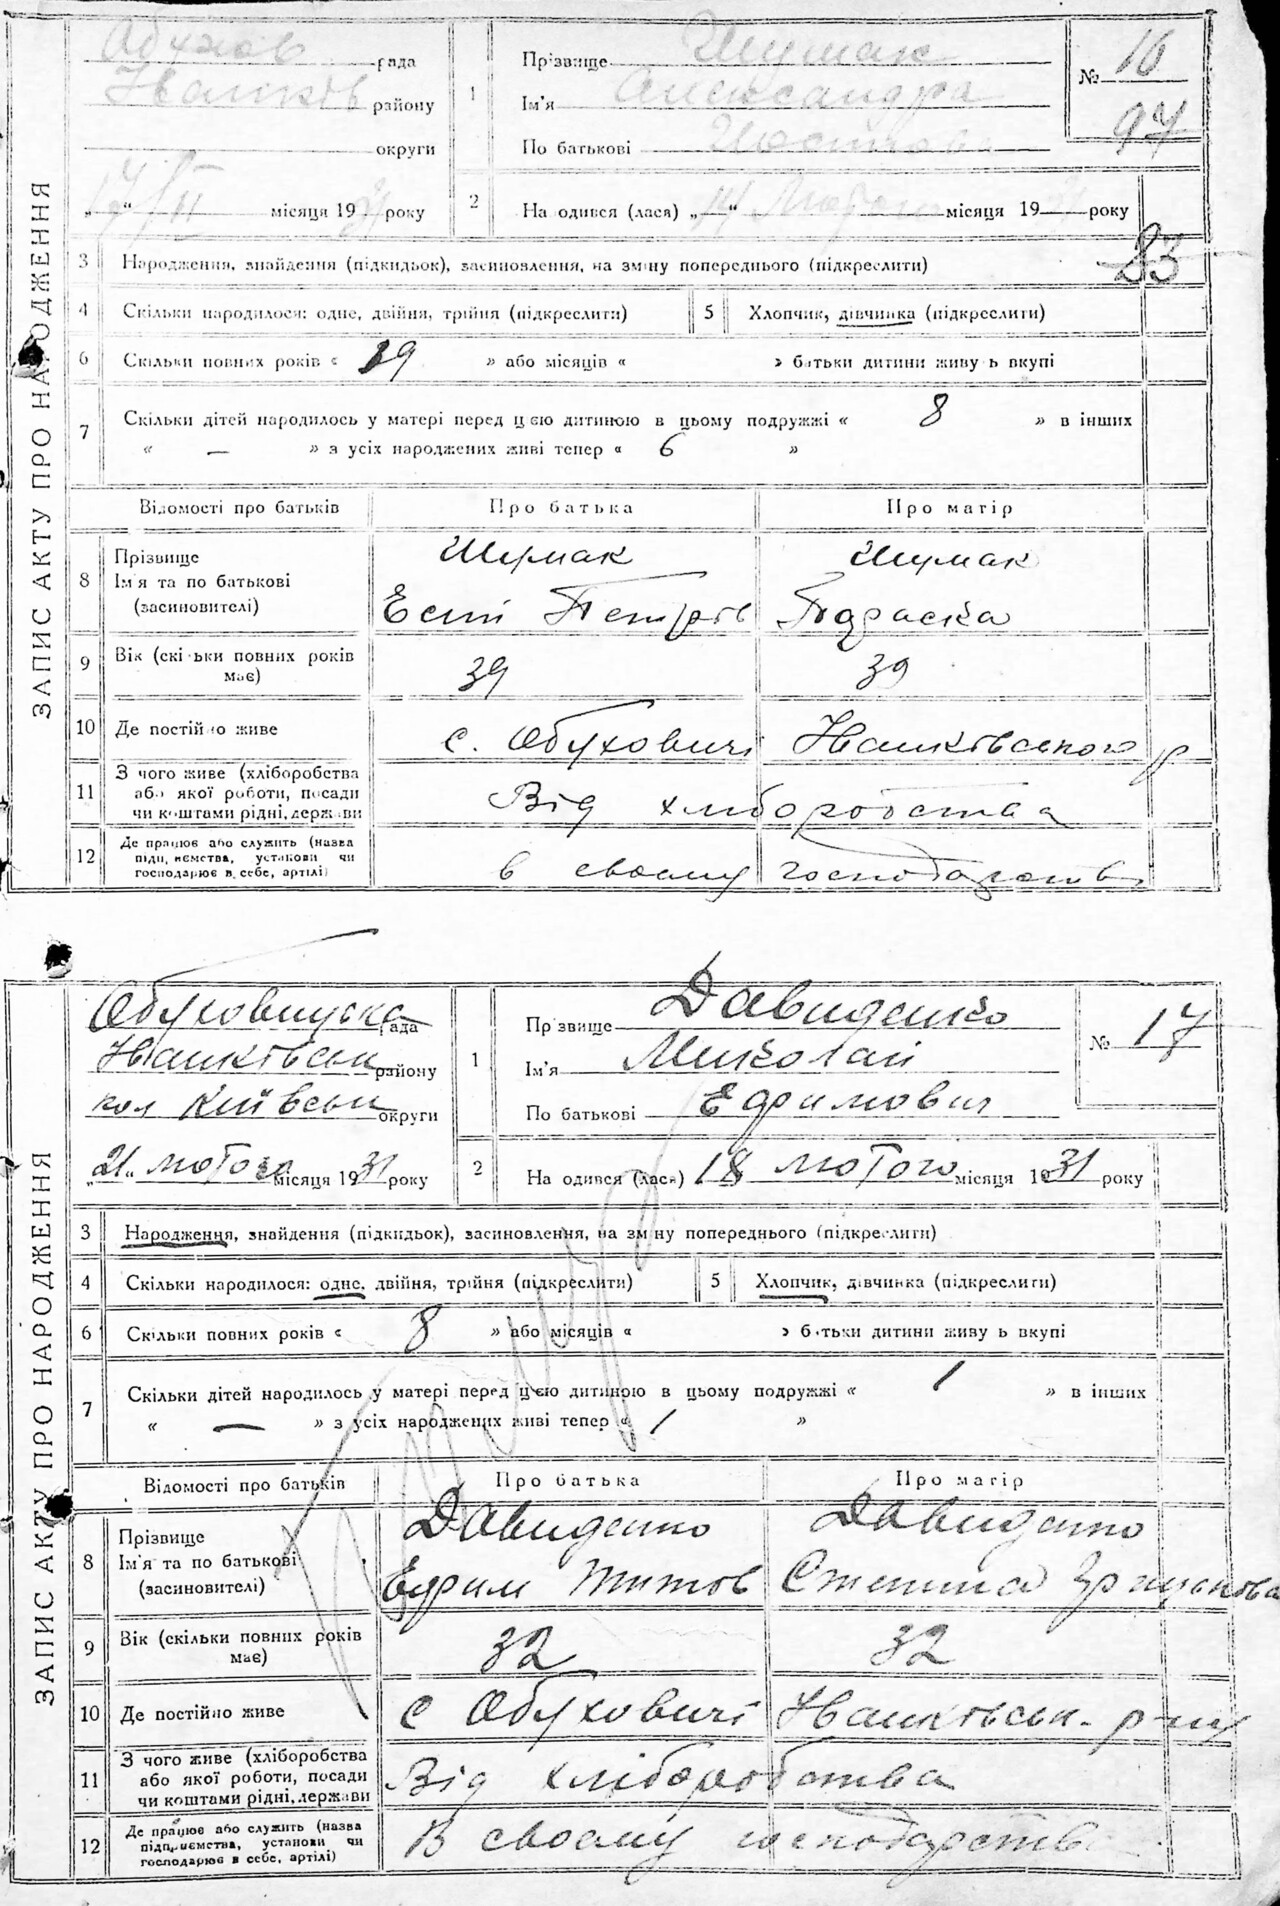 ЗАПИС АКТУ ПРО НАРОДЖЕННЯ
Обухов рада
Іванків району
округи
17/II місяця 1931 року
1
Прізвище Шумак
Ім'я Александра
По батькові
№ 16
97
2
На одився (лася) „14“ Лютого місяця 19 року
83
3 Народження, знайдення (підкидьок), засиновлення, на зміну попереднього (підкреслити)
4 Скільки народилося: одне, двійня, трійня (підкреслити) 5 Хлопчик, дівчинка (підкреслити)
6 Скільки повних років « 19 » або місяців « » батьки дитини живу ь вкупі
7 Скільки дітей народилось у матері перед цією дитиною в цьому подружжі « 8 » в інших
« — » з усіх народжених живі тепер « 6 »
Відомості про батьків Про батька Про матір
8 Прізвище Шумак Шумак
Ім'я та по батькові Есип Петров Параска
(засиновителі)
9 Вік (скі ьки повних років має) 39 39
10 Де постійно живе с. Обуховичі Іванківського р
11 З чого живе (хліборобства або якої роботи, посади чи коштами рідні, держави Від хліборобства
12 Де працює або служить (назва підприємства, установи чи господарює в себе, артілі) в своему господарстві
ЗАПИС АКТУ ПРО НАРОДЖЕННЯ
Обуховицька рада
Іванківськ району
Київськ округи
„21“ лютого місяця 1931 року
1
Пр звище Давиденко
Ім'я Миколай
По батькові Ефимович
№ 17
2
На одився (лася) 18 лютого місяця 1931 року
3 Народження, знайдення (підкидьок), засиновлення, на зміну попереднього (підкреслити)
4 Скільки народилося: одне, двійня, трійня (підкреслити) 5 Хлопчик, дівчинка (підкреслити)
6 Скільки повних років « 8 » або місяців « » батьки дитини живу ь вкупі
7 Скільки дітей народилось у матері перед цією дитиною в цьому подружжі « 1 » в інших
« — » з усіх народжених живі тепер « 1 »
Відомості про батьків Про батька Про матір
8 Прізвище Давиденко Давиденко
Ім'я та по батькові Ефим Титов
(засиновителі)
9 Вік (скільки повних років має) 32 32
10 Де постійно живе с Обуховичі Іванківськ. р-ну
11 З чого живе (хліборобства або якої роботи, посади чи коштами рідні, держави Від хліборобства
12 Де працює або служить (назва підприємства, установи чи господарює в себе, артілі) В своему господарстві